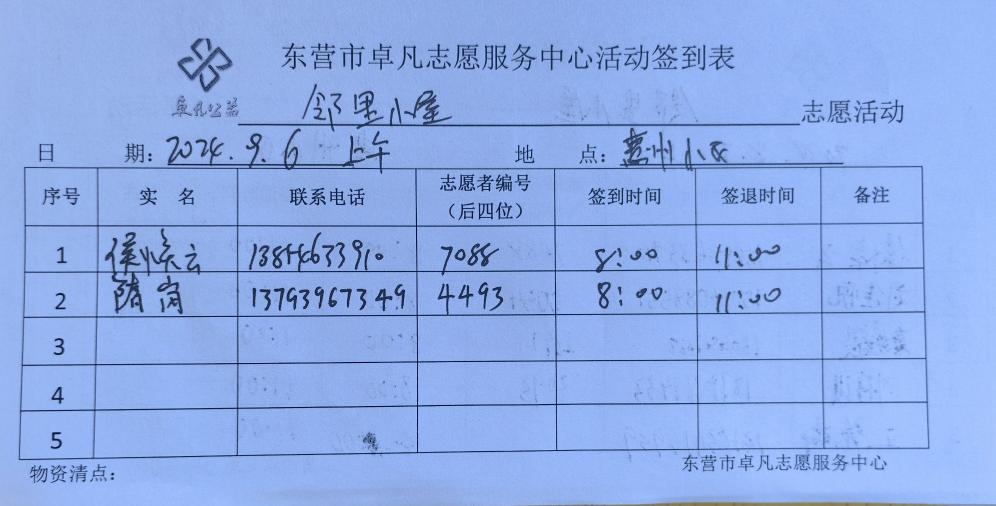 东营市卓凡志愿服务中心活动签到表
卓凡公益
邻里小屋 志愿活动
日 期：2024.9.6 上午 地 点：惠州小区
序号 实 名 联系电话 志愿者编号（后四位） 签到时间 签退时间 备注
1 侯焕云 13854663910 7088 8:00 11:00
2 隋 13793967349 4493 8:00 11:00
3
4
5
物资清点： 东营市卓凡志愿服务中心